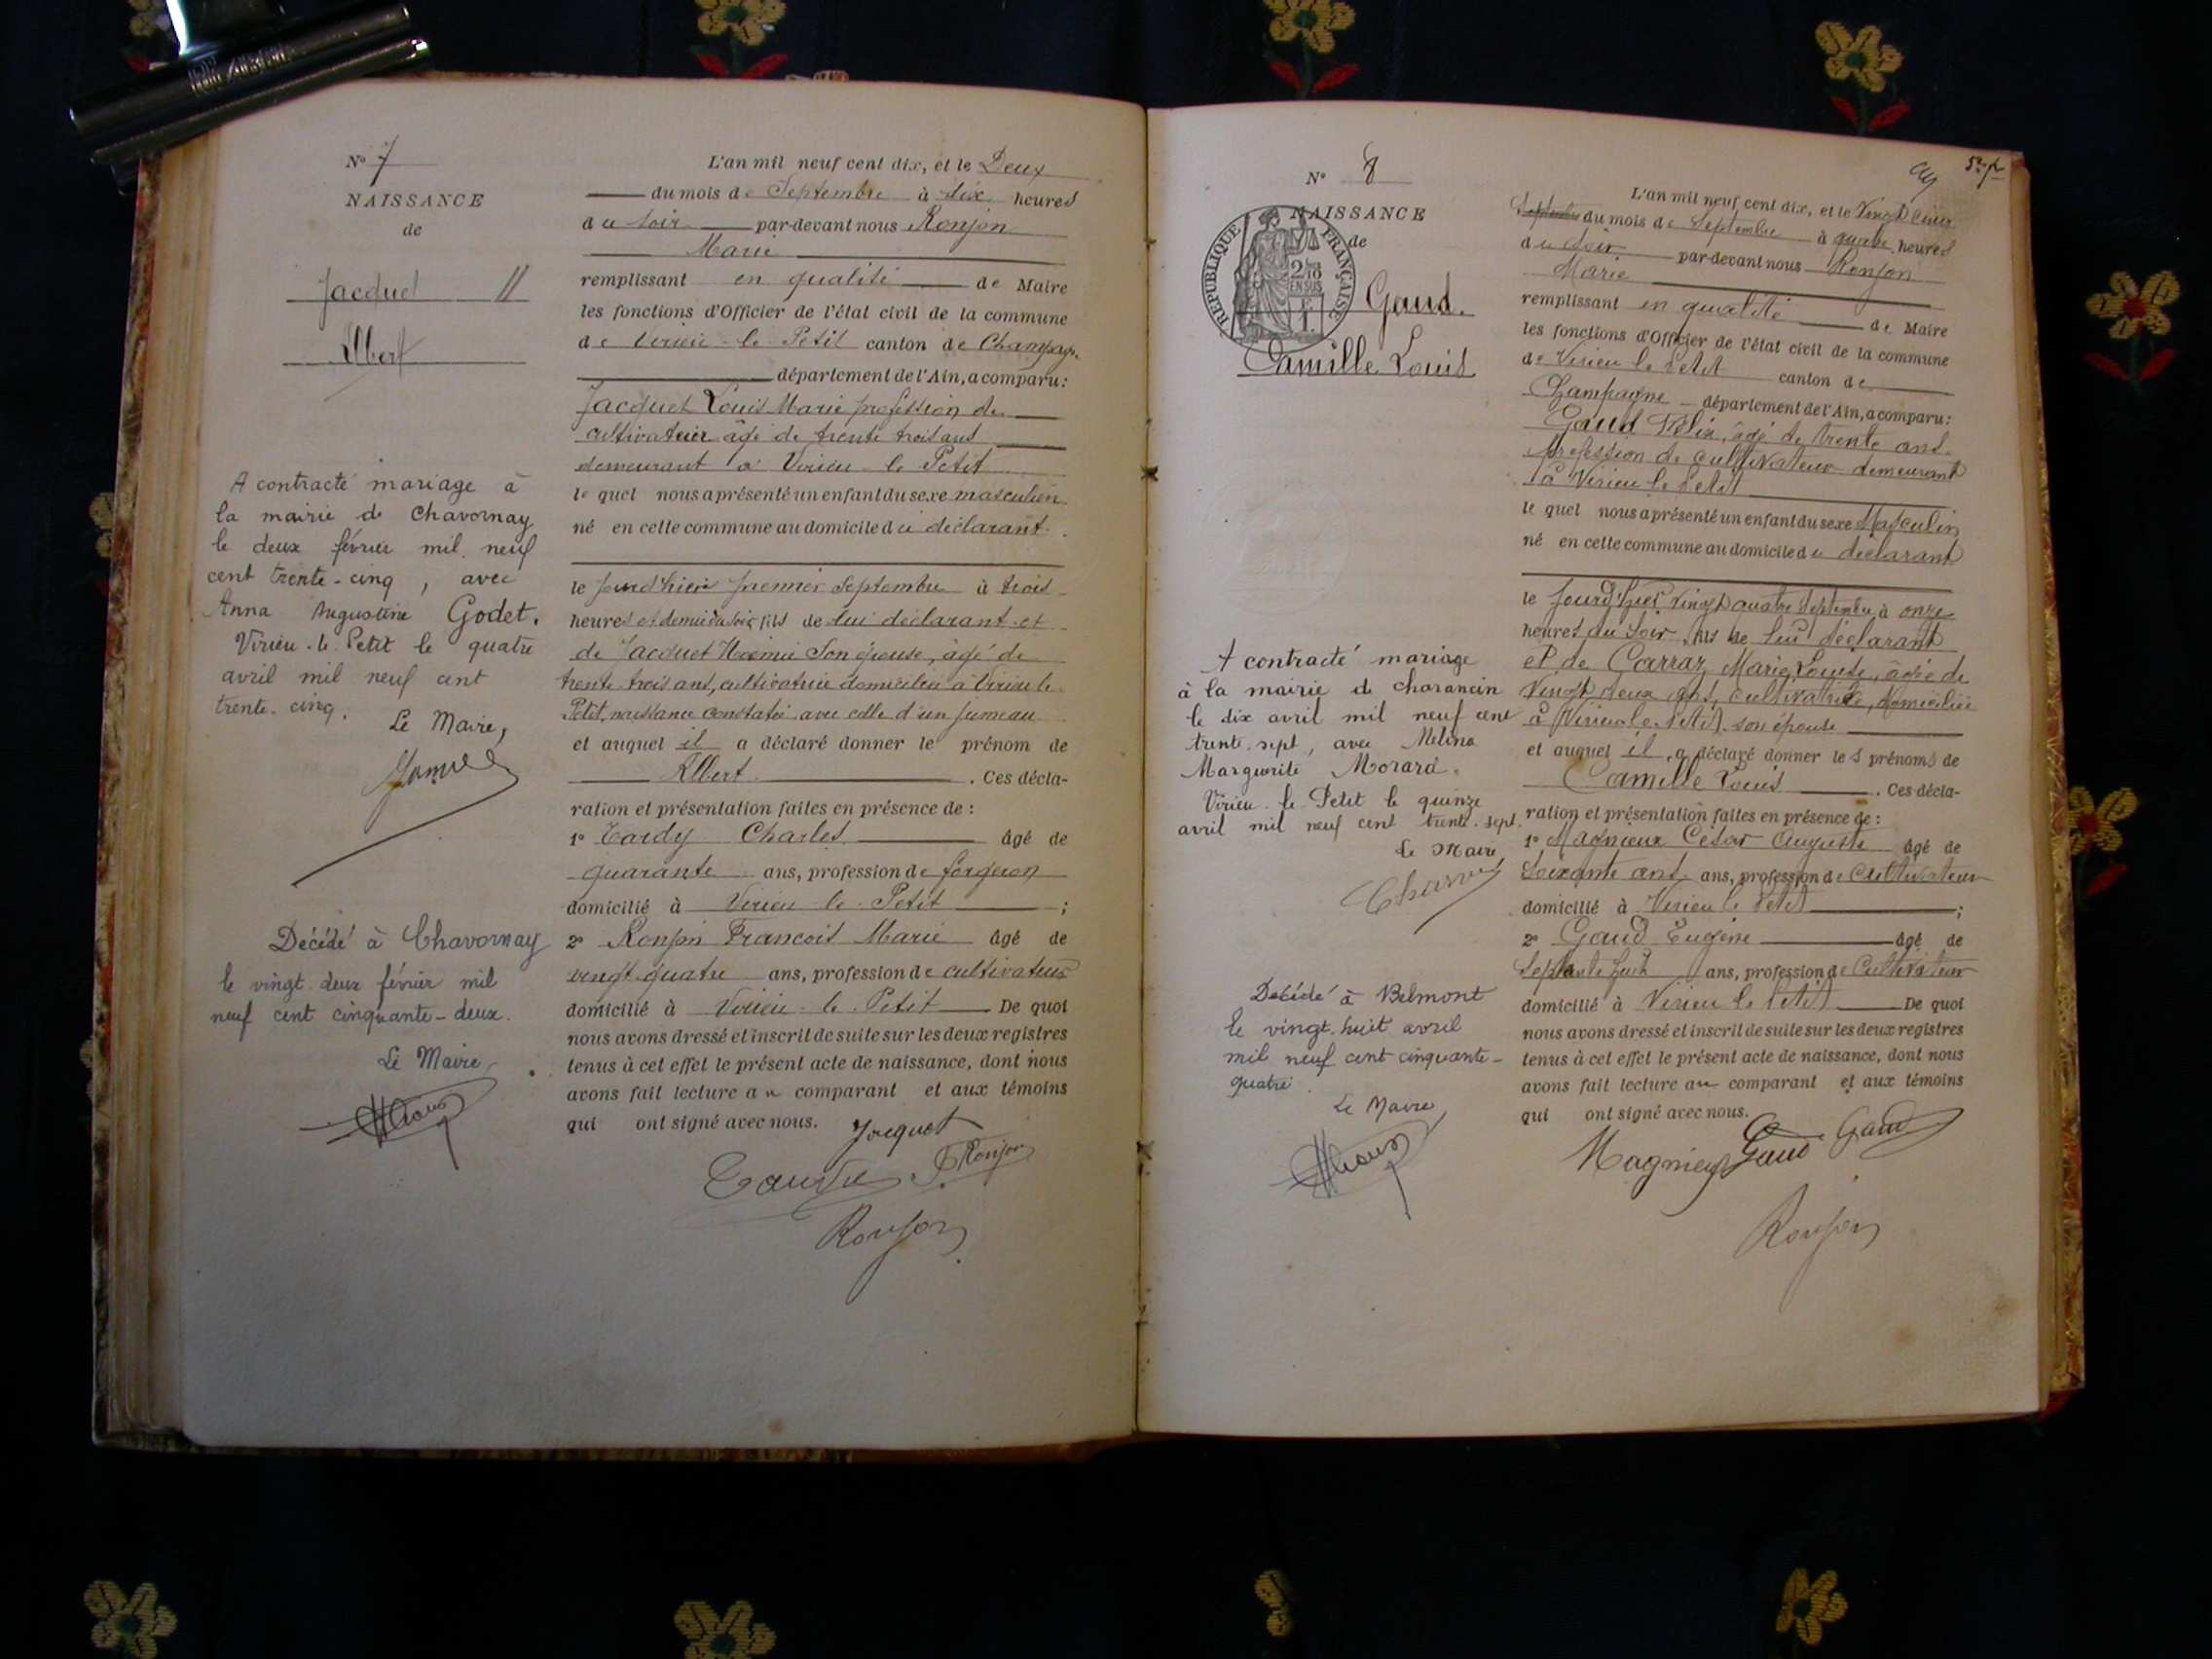 N° 7
NAISSANCE
de
Jacquet
Albert
A contracté mariage à
la mairie de Chavornay
le deux février mil neuf
cent trente-cinq, avec
Anna Augustine Godet.
Virieu-le-Petit le quatre
avril mil neuf cent
trente-cinq.
Le Maire,
Décédé à Chavornay
le vingt-deux février mil
neuf cent cinquante-deux.
Le Maire,
L'an mil neuf cent dix, et le Deux
du mois de Septembre à dix heures
du soir par-devant nous Ronjon
Marie
remplissant en qualité de Maire
les fonctions d'Officier de l'état civil de la commune
de Virieu-le-Petit canton de Champag.
département de l'Ain, a comparu:
Jacquet Louis Marie profession de
cultivateur âgé de trente trois ans
demeurant à Virieu-le-Petit
le quel nous a présenté un enfant du sexe masculin
né en cette commune au domicile du déclarant.
le jour d'hier premier Septembre à trois
heures et demie du soir fils de lui déclarant et
de Jacquet Noémie son épouse, âgé de
trente trois ans, cultivatrice domiciliée à Virieu le
Petit, naissance constatée avec celle d'un jumeau
et auquel il a déclaré donner le prénom de
Albert. Ces décla-
ration et présentation faites en présence de :
1° Tardy Charles âgé de
quarante ans, profession de forgeron
domicilié à Virieu le Petit ;
2° Ronjon Francois Marie âgé de
vingt quatre ans, profession de cultivateur
domicilié à Virieu-le-Petit De quoi
nous avons dressé et inscrit de suite sur les deux registres
tenus à cet effet le présent acte de naissance, dont nous
avons fait lecture au comparant et aux témoins
qui ont signé avec nous. Jacquet
F. Ronjon
Ronjon
N° 8
NAISSANCE
de
REPUBLIQUE FRANÇAISE
2/10
EN SUS
Gaud.
Camille Louis
A contracté mariage
à la mairie de Charancin
le dix avril mil neuf cent
trente-sept, avec Melina
Marguerite Morard.
Virieu-le-Petit le quinze
avril mil neuf cent trente-sept.
Le Maire,
Décédé à Belmont
le vingt-huit avril
mil neuf cent cinquante-
quatre.
Le Maire,
L'an mil neuf cent dix, et le Vingt cinq
Septembre du mois de Septembre à quatre heures
du soir par-devant nous Ronjon
Marie
remplissant en qualité de Maire
les fonctions d'Officier de l'état civil de la commune
de Virieu le Petit canton de
Champagne département de l'Ain, a comparu:
Gaud Félix, âgé de trente ans.
profession de cultivateur demeurant
à Virieu le Petit
le quel nous a présenté un enfant du sexe Masculin
né en cette commune au domicile du déclarant
le jour d'hier vingt quatre septembre à onze
heures du soir fils de lui déclarant
et de Carraz Marie Louise, âgée de
Vingt deux ans, cultivatrice, domiciliée
à Virieu le Petit son épouse
et auquel il a déclaré donner les prénoms de
Camille Louis. Ces décla-
ration et présentation faites en présence de :
1° Magnieux César Auguste âgé de
Soixante ans ans, profession de Cultivateur
domicilié à Virieu le Petit ;
2° Gaud Eugène âgé de
Septante huit ans, profession de Cultivateur
domicilié à Virieu le Petit De quoi
nous avons dressé et inscrit de suite sur les deux registres
tenus à cet effet le présent acte de naissance, dont nous
avons fait lecture au comparant et aux témoins
qui ont signé avec nous.
Magnieux Gaud Gaud
Ronjon